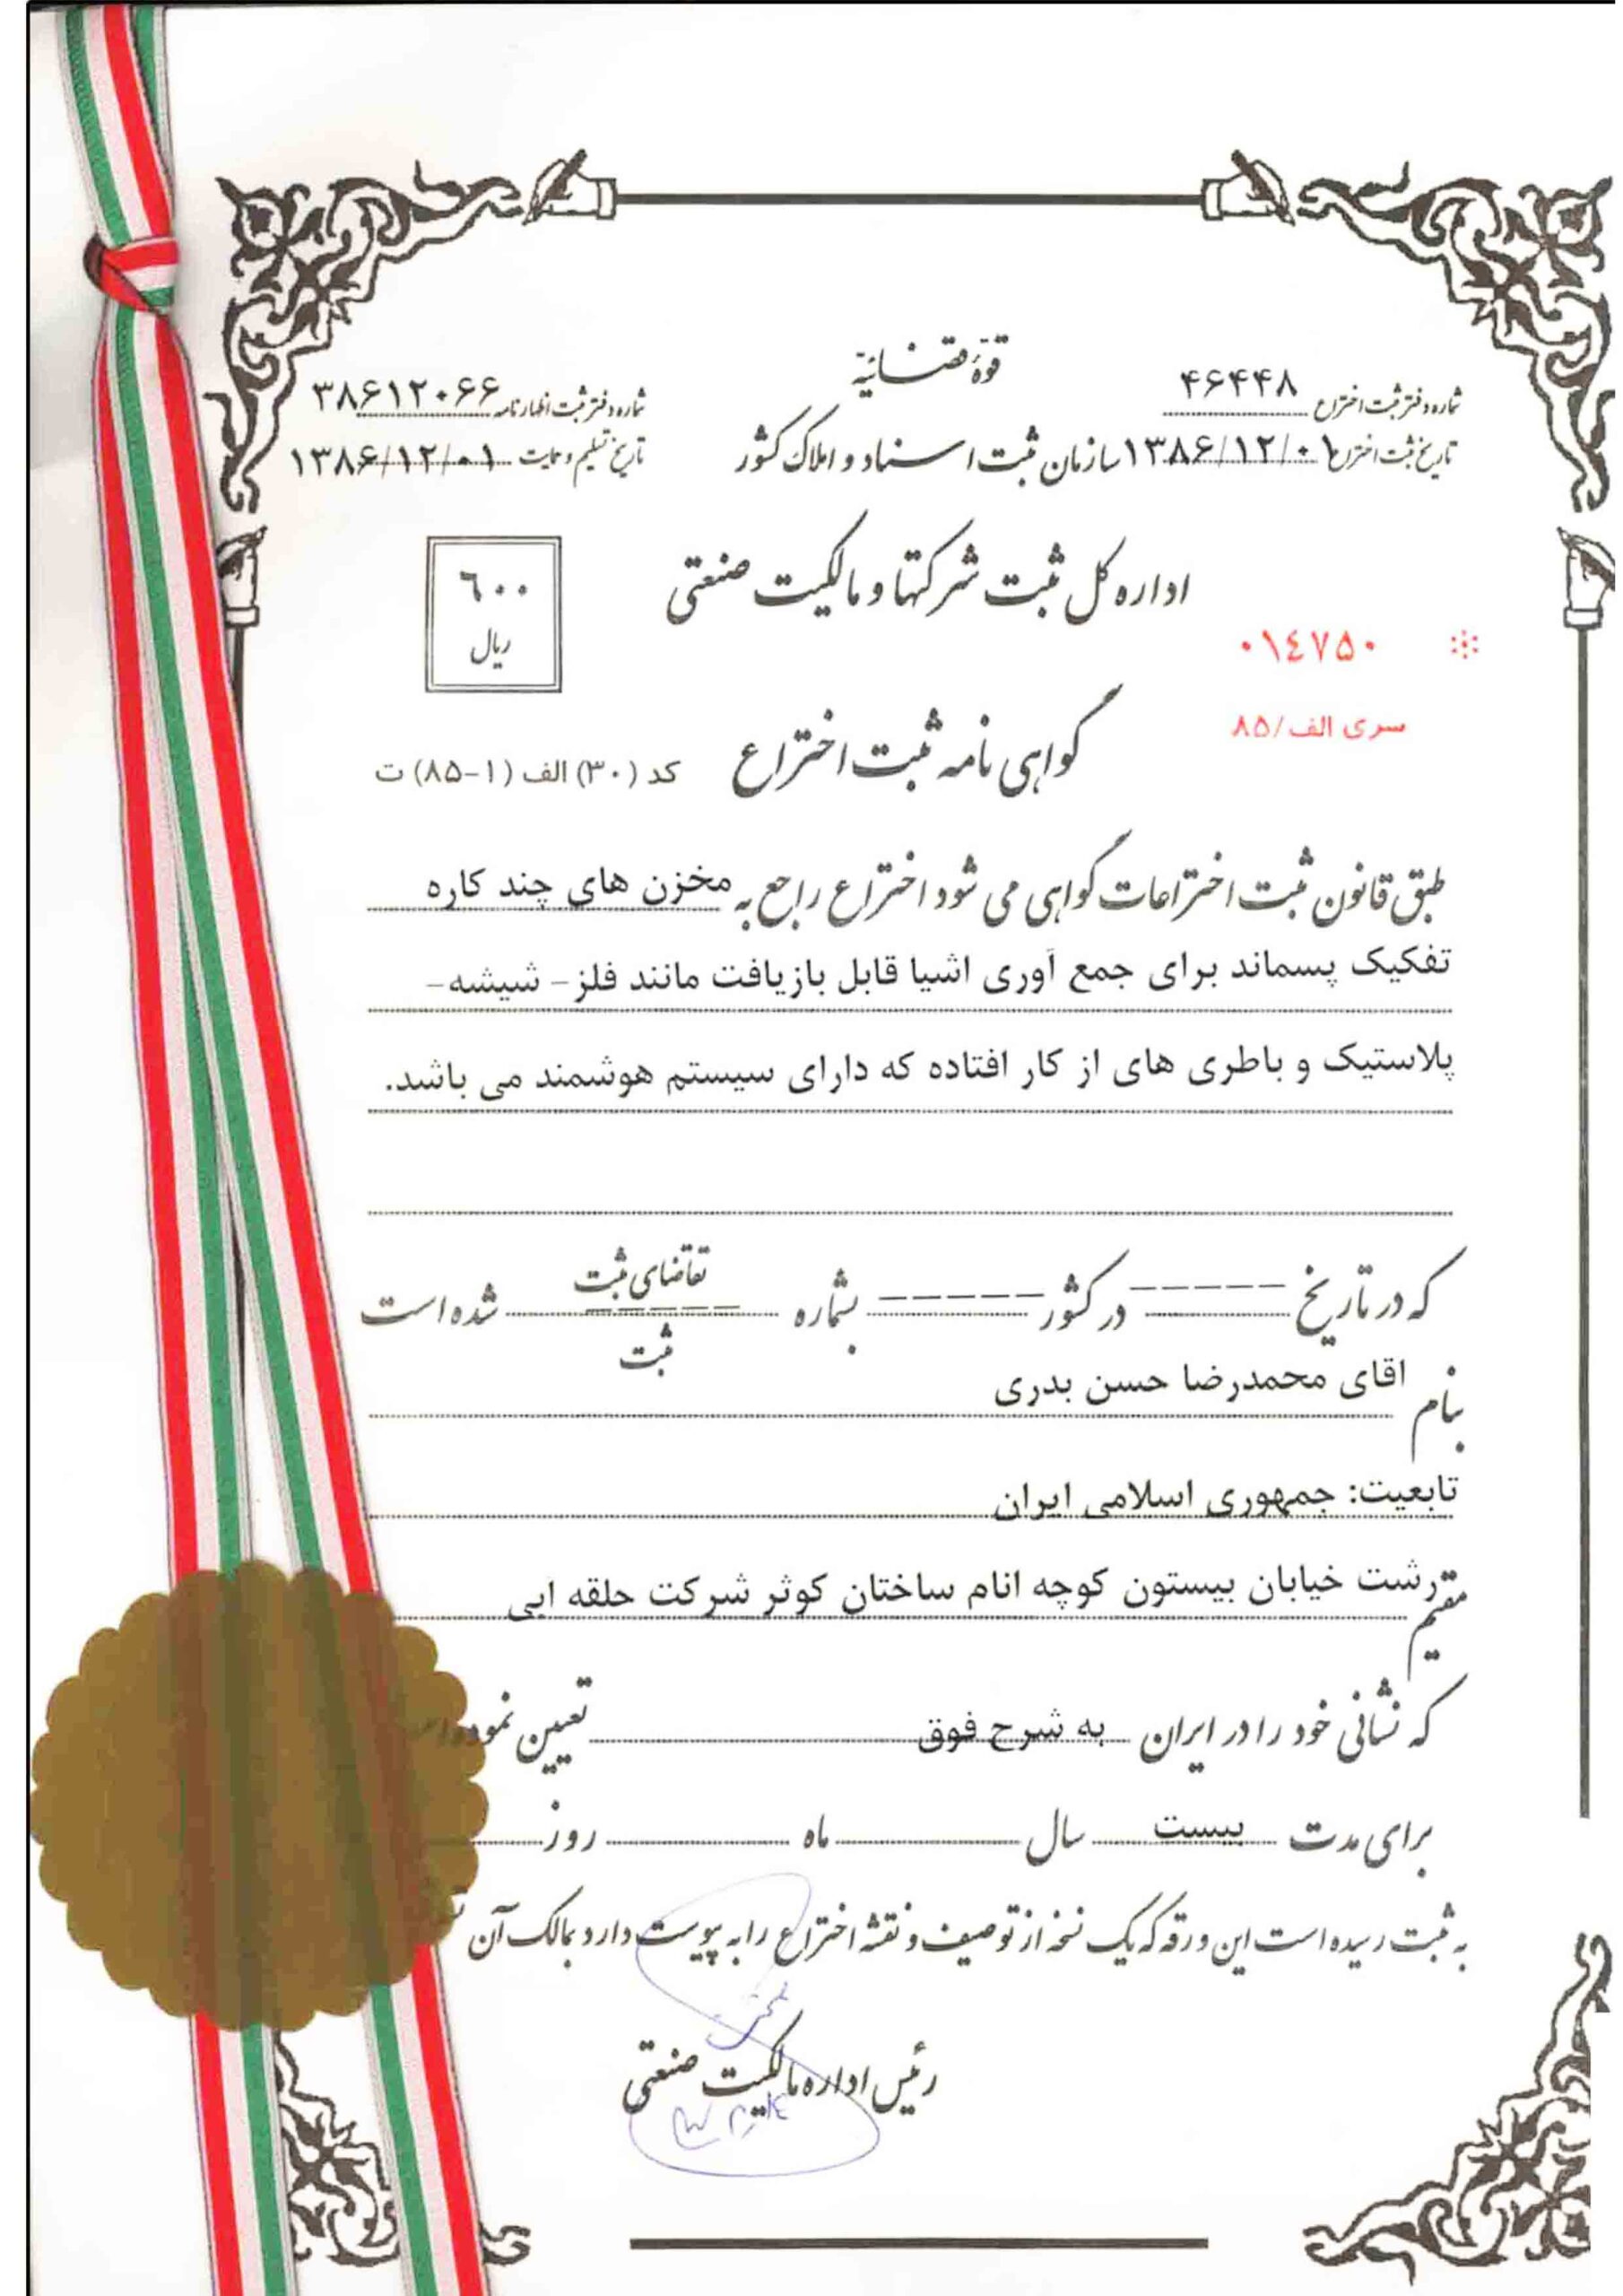 قوهٔ قضائیّه
شماره دفتر ثبت اختراع ۴۶۴۴۸
شماره دفتر ثبت اظهارنامه ۳۸۶۱۲۰۶۶
تاریخ ثبت اختراع ۱۳۸۶/۱۲/۰۱
سازمان ثبت اسناد و املاک کشور
تاریخ تسلیم و حمایت ۱۳۸۶/۱۲/۰۱
اداره کل ثبت شرکتها و مالکیت صنعتی
۶۰۰
ریال
۰۱۴۷۵۰
سری الف/۸۵
گواهی نامه ثبت اختراع
کد (۳۰) الف (۱-۸۵) ت
طبق قانون ثبت اختراعات گواهی می شود اختراع راجع به مخزن های چند کاره
تفکیک پسماند برای جمع آوری اشیا قابل بازیافت مانند فلز- شیشه-
پلاستیک و باطری های از کار افتاده که دارای سیستم هوشمند می باشد.
که در تاریخ ------ در کشور ------ بشماره تقاضای ثبت ----- ثبت شده است
بنام اقای محمدرضا حسن بدری
تابعیت: جمهوری اسلامی ایران
مقیم رشت خیابان بیستون کوچه انام ساختان کوثر شرکت حلقه ابی
که نشانی خود را در ایران به شرح فوق تعیین نموده
برای مدت بیست سال ماه روز
به ثبت رسیده است این ورقه که یک نسخه از توصیف و نقشه اختراع را به پیوست دارد بمالک آن
رئیس اداره مالکیت صنعتی